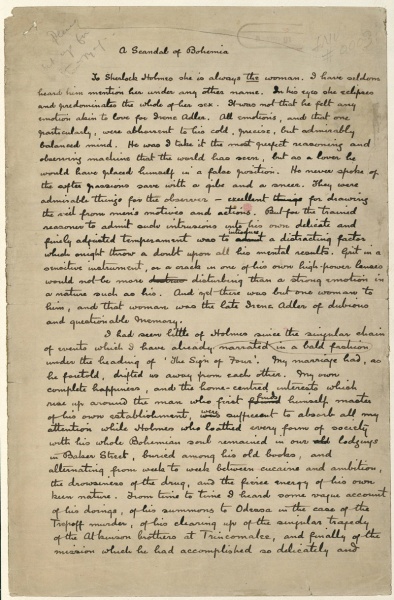 A Scandal of Bohemia
To Sherlock Holmes she is always the woman. I have seldom
heard him mention her under any other name. In his eyes she eclipses
and predominates the whole of her sex. It was not that he felt any
emotion akin to love for Irene Adler. All emotions, and that one
particularly, were abhorrent to his cold, precise, but admirably
balanced mind. He was I take it the most perfect reasoning and
observing machine that the world has seen, but as a lover he
would have placed himself in a false position. He never spoke of
the softer passions save with a gibe and a sneer. They were
admirable things for the observer - excellent things for drawing
the veil from men's motives and actions. But for the trained
reasoner to admit such intrusions into his own delicate and
finely adjusted temperament was to introduce a distracting factor
which might throw a doubt upon all his mental results. Grit in a
sensitive instrument, or a crack in one of his own high-power lenses
would not be more disturbing than a strong emotion in
a nature such as his. And yet there was but one woman to
him, and that woman was the late Irene Adler of dubious
and questionable memory.
I had seen little of Holmes since the singular chain
of events which I have already narrated in a bald fashion
under the heading of 'The Sign of Four'. My marriage had, as
he foretold, drifted us away from each other. My own
complete happiness, and the home-centred interests which
rise up around the man who first finds himself master
of his own establishment, were sufficient to absorb all my
attention while Holmes who loathed every form of society
with his whole Bohemian soul remained in our old lodgings
in Baker Street, buried among his old books, and
alternating from week to week between cucaine and ambition,
the drowsiness of the drug, and the fierce energy of his own
keen nature. From time to time I heard some vague account
of his doings, of his summons to Odessa in the case of the
Trepoff murder, of his clearing up of the singular tragedy
of the Atkinson brothers at Trincomalee, and finally of the
mission which he had accomplished so delicately and